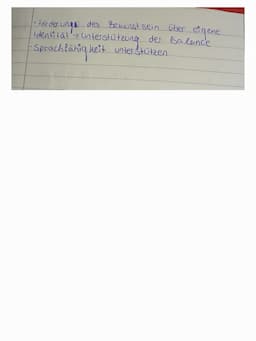 - Förderung des Bewusstsein über eigene
Identität → Unterstützung der Balance
- Sprachfähigkeit unterstützen